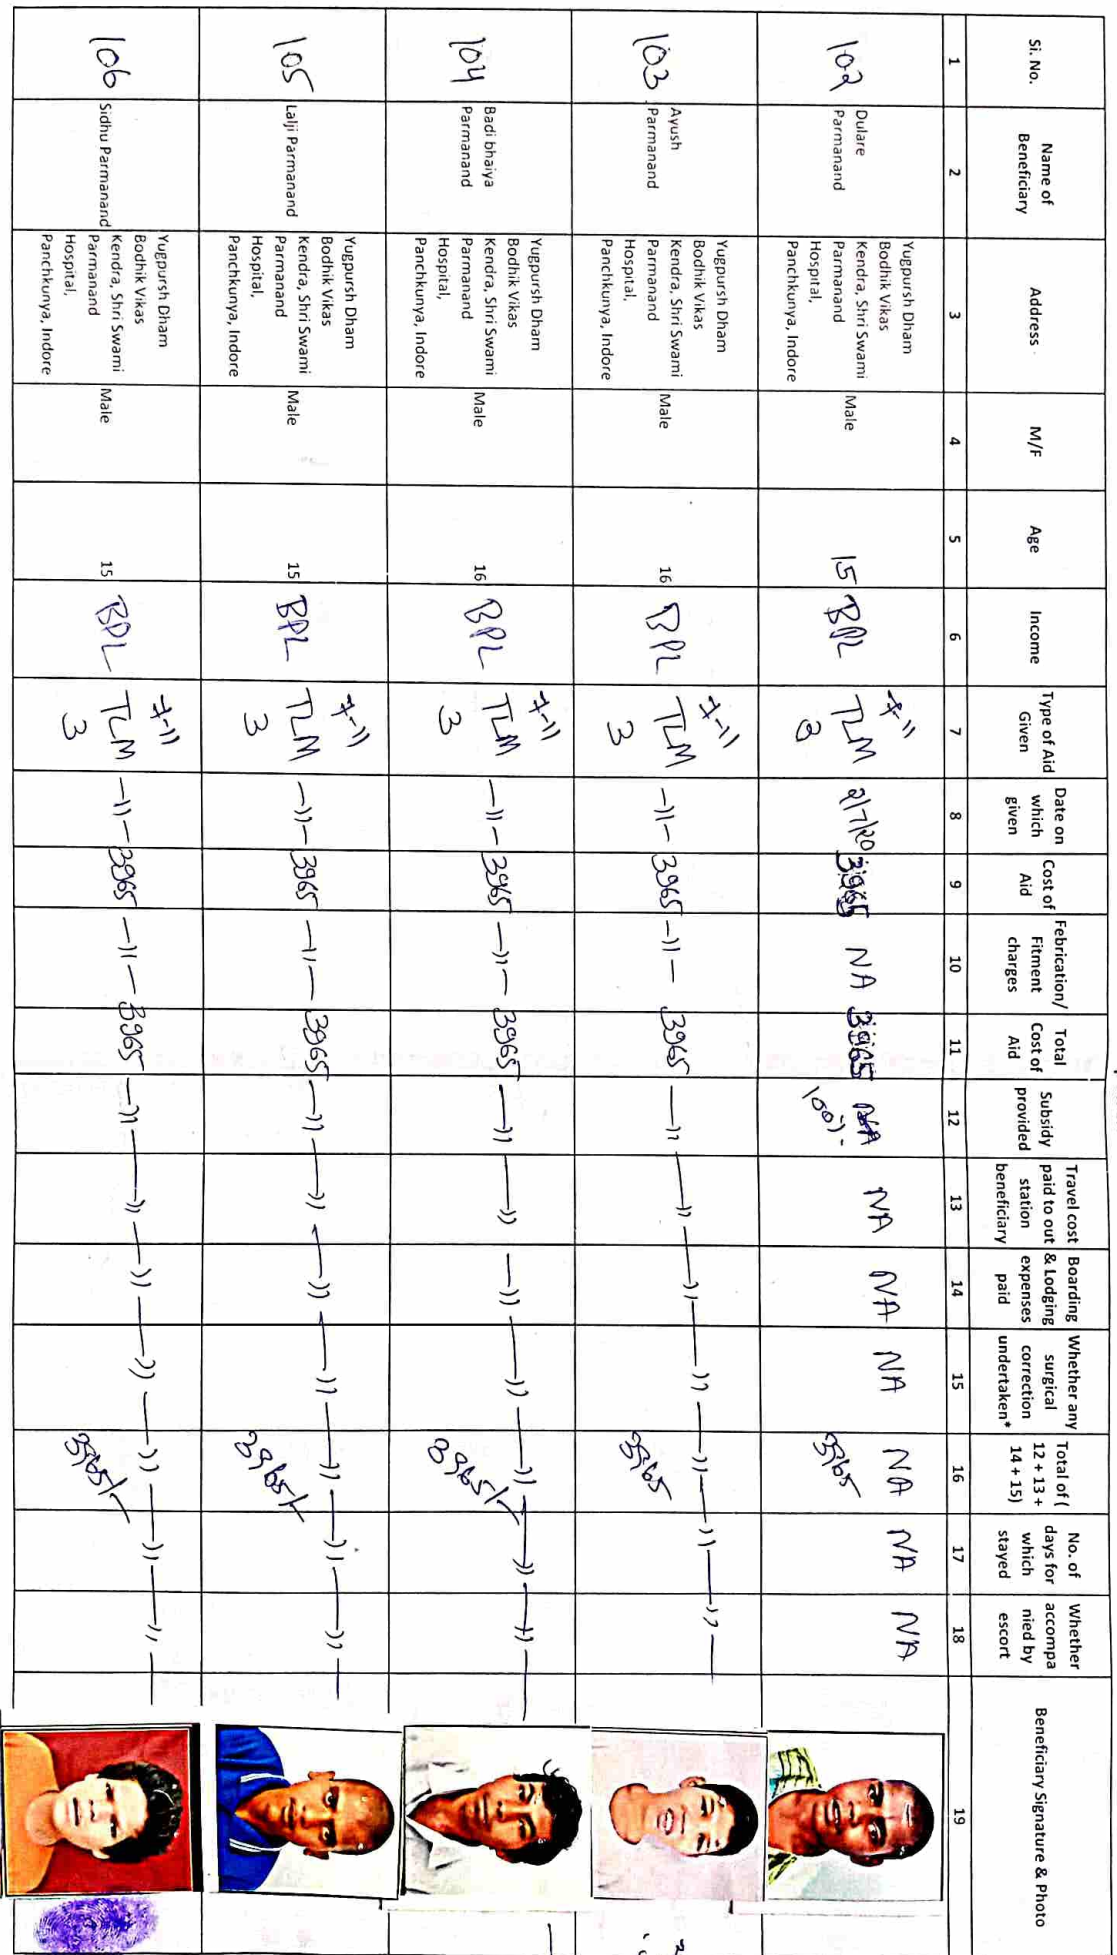 Si. No.
Name of
Beneficiary
Address
M/F
Age
Income
Type of Aid
Given
Date on
which
given
Cost of
Aid
Febrication/
Fitment
charges
Total
Cost of
Aid
Subsidy
provided
Travel cost
paid to out
station
beneficiary
Boarding
& Lodging
expenses
paid
Whether any
surgical
correction
undertaken*
Total of (
12 + 13 +
14 + 15)
No. of
days for
which
stayed
Whether
accompa
nied by
escort
Beneficiary Signature & Photo
1 2 3 4 5 6 7 8 9 10 11 12 13 14 15 16 17 18 19
102
Dulare
Parmanand
Yugpursh Dham
Bodhik Vikas
Kendra, Shri Swami
Parmanand
Hospital,
Panchkunya, Indore
Male
15
BPL
7-11
TLM
3
2/7/20
3965
NA
3965
NA
100%.
NA
NA
NA
NA
3965
NA
NA
103
Ayush
Parmanand
Yugpursh Dham
Bodhik Vikas
Kendra, Shri Swami
Parmanand
Hospital,
Panchkunya, Indore
Male
16
BPL
7-11
TLM
3
-11-
3965
-11-
3965
-11-
-11-
-11-
-11-
-11-
3965
-11-
-11-
104
Badi bhaiya
Parmanand
Yugpursh Dham
Bodhik Vikas
Kendra, Shri Swami
Parmanand
Hospital,
Panchkunya, Indore
Male
16
BPL
7-11
TLM
3
-11-
3965
-11-
3965
-11-
-11-
-11-
-11-
-11-
3965/-
-11-
-11-
105
Lalji Parmanand
Yugpursh Dham
Bodhik Vikas
Kendra, Shri Swami
Parmanand
Hospital,
Panchkunya, Indore
Male
15
BPL
7-11
TLM
3
-11-
3965
-11-
3965
-11-
-11-
-11-
-11-
-11-
3965/-
-11-
-11-
106
Sidhu Parmanand
Yugpursh Dham
Bodhik Vikas
Kendra, Shri Swami
Parmanand
Hospital,
Panchkunya, Indore
Male
15
BPL
7-11
TLM
3
-11-
3965
-11-
3965
-11-
-11-
-11-
-11-
-11-
3965/-
-11-
-11-